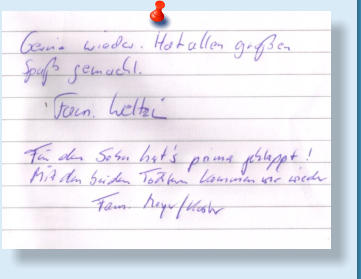 Gerne wieder. Hat allen großen
Spaß gemacht.
Fam.
Für den Sohn hat's prima geklappt!
Mit den beiden Töchtern kommen wir wieder
Fam. Meyer/